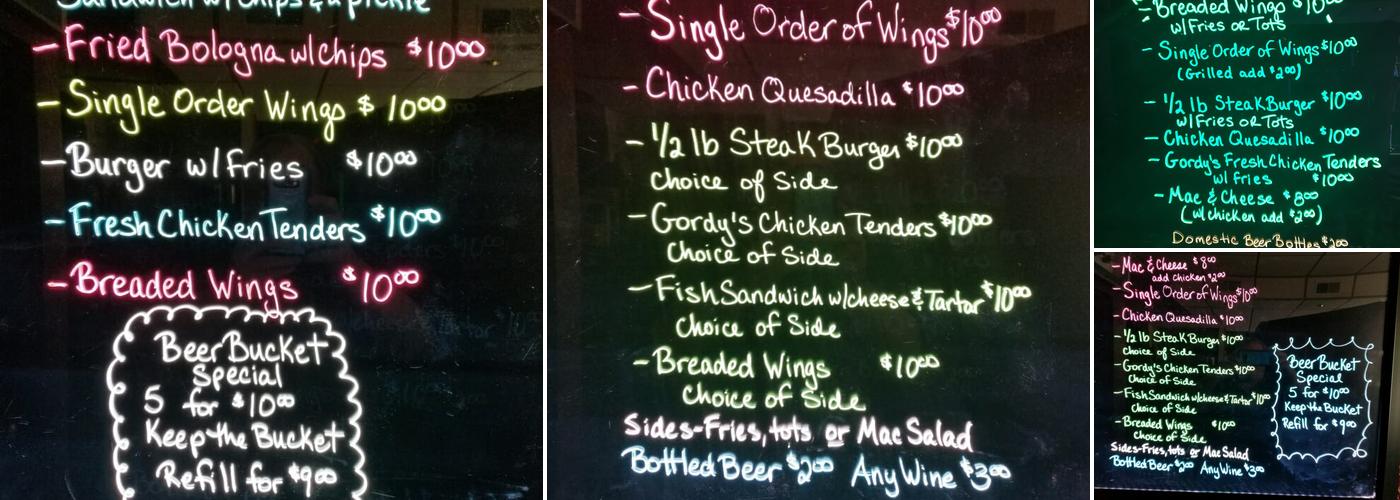 Sandwich w/chips & a pickle
- Fried Bologna w/chips $10.00
- Single Order Wings $10.00
- Burger w/Fries $10.00
- Fresh Chicken Tenders $10.00
- Breaded Wings $10.00
Beer Bucket
Special
5 for $10.00
Keep the Bucket
Refill for $9.00
- Single Order of Wings $10.00
- Chicken Quesadilla $10.00
- 1/2 lb Steak Burger $10.00
Choice of Side
- Gordy's Chicken Tenders $10.00
Choice of Side
- Fish Sandwich w/cheese & Tartar $10.00
Choice of Side
- Breaded Wings $10.00
Choice of Side
Sides-Fries, tots or Mac Salad
Bottled Beer $2.00 Any Wine $3.00
- Breaded Wings $10.00
w/Fries or Tots
- Single Order of Wings $10.00
(Grilled add $2.00)
- 1/2 lb Steak Burger $10.00
w/Fries or Tots
- Chicken Quesadilla $10.00
- Gordy's Fresh Chicken Tenders
w/ Fries $10.00
- Mac & Cheese $8.00
(w/ chicken add $2.00)
Domestic Beer Bottles $2.00
- Mac & Cheese $8.00
add chicken $2.00
- Single Order of Wings $10.00
- Chicken Quesadilla $10.00
- 1/2 lb Steak Burger $10.00
Choice of Side
- Gordy's Chicken Tenders $10.00
Choice of Side
- Fish Sandwich w/cheese & Tartar $10.00
Choice of Side
- Breaded Wings $10.00
Choice of Side
Sides-Fries, tots or Mac Salad
Bottled Beer $2.00 Any Wine $3.00
Beer Bucket
Special
5 for $10.00
Keep the Bucket
Refill for $9.00